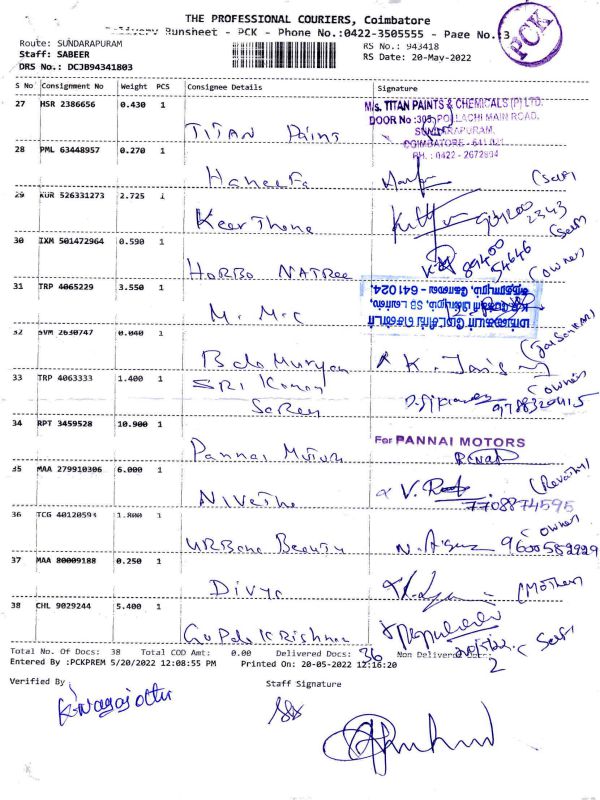 THE PROFESSIONAL COURIERS, Coimbatore
Delivery Runsheet - PCK - Phone No.:0422-3505555 - Page No.:3
PCK
Route: SUNDARAPURAM
Staff: SABEER
DRS No.: DCJB94341803
RS No.: 943418
RS Date: 20-May-2022
S No Consignment No Weight PCS Consignee Details Signature
27 HSR 2386656 0.430 1
TITAN Paint
M/s. TITAN PAINTS & CHEMICALS (P) LTD.
DOOR No :305, POLLACHI MAIN ROAD,
SUNDARAPURAM,
COIMBATORE - 641 021
PH. : 0422 - 2672894
28 PML 63448957 0.270 1
Haneefa
(Self)
29 KUR 526331273 2.725 1
Keerthana
(Self)
30 IXM 501472964 0.590 1
HORBO NATREE
89400
54646
(Owner)
31 TRP 4065229 3.550 1
M.M.C
32 SVM 2630747 0.040 1
Bala Murugan
33 TRP 4063333 1.400 1
SRI
(Owner)
9788320415
34 RPT 3459528 10.900 1
Pannai Motors
For PANNAI MOTORS
35 MAA 279910306 6.000 1
Nivetha
(Revathy)
7708874595
36 TCG 40120594 1.800 1
URBane Beauty
(Owner)
9600582929
37 MAA 80009188 0.250 1
Divya
(Mother)
38 CHL 9029244 5.400 1
Gopala Krishnan
(Self)
Total No. Of Docs: 38 Total COD Amt: 0.00 Delivered Docs: 36 Non Delivered Docs: 2
Entered By :PCKPREM 5/20/2022 12:08:55 PM Printed On: 20-05-2022 12:16:20
Verified By
Staff Signature